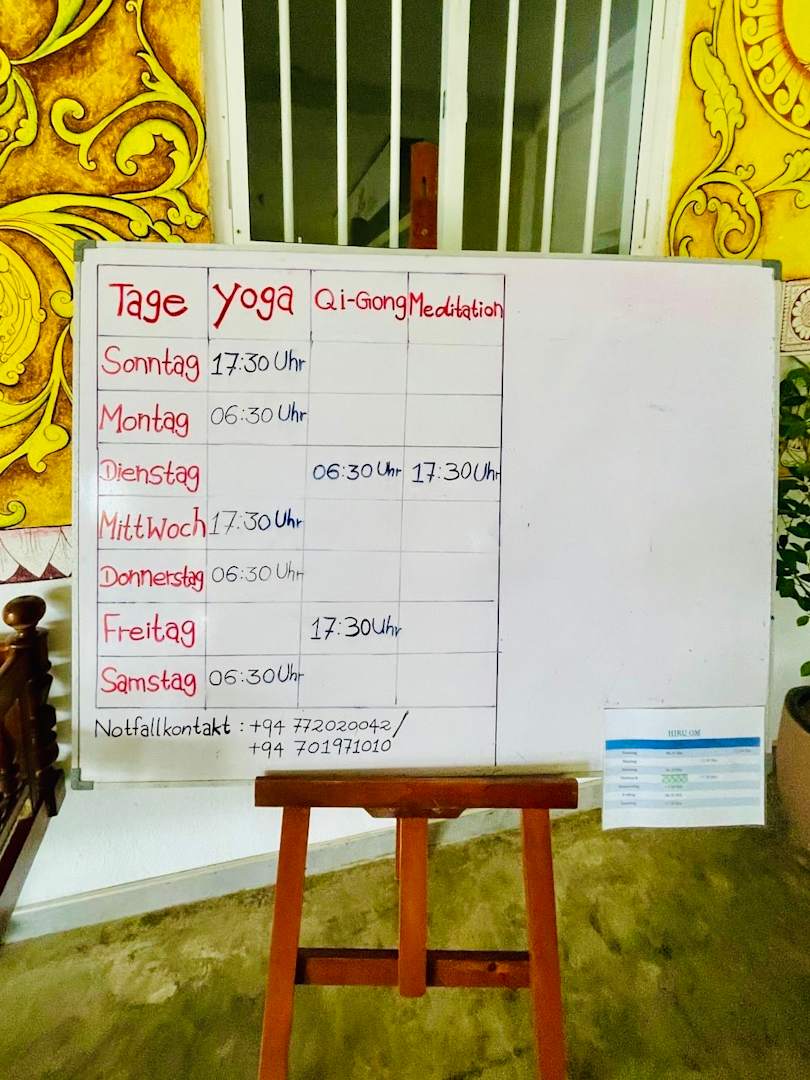 Tage Yoga Qi-Gong Meditation
Sonntag 17:30 Uhr
Montag 06:30 Uhr
Dienstag 06:30 Uhr 17:30 Uhr
MittWoch 17:30 Uhr
Donnerstag 06:30 Uhr
Freitag 17:30 Uhr
Samstag 06:30 Uhr
Notfallkontakt : +94 772020042/
+94 701971010
HIRU OM